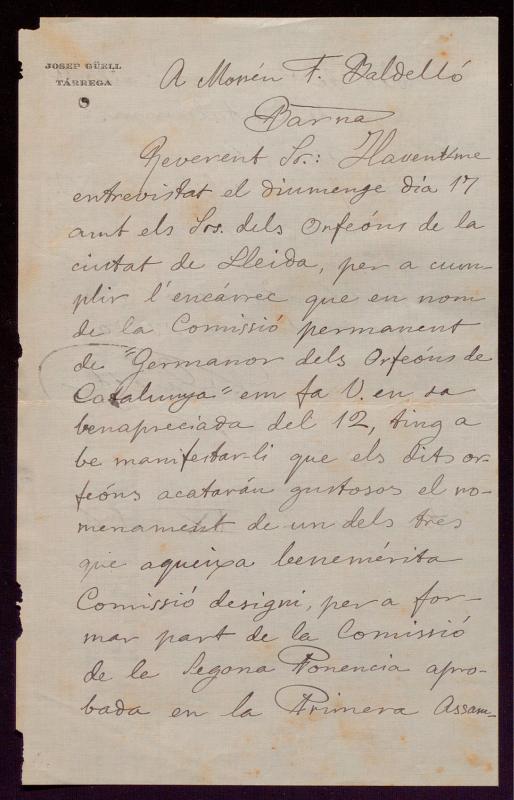 JOSEP GÜELL
TÁRREGA
A Mossén F. Baldelló
Barna
Reverent Sr.: Haventme
entrevistat el diumenge dia 17
amt els Srs. dels Orfeóns de la
ciutat de Lleida, per a cum-
plir l'encárrec que en nom
de la Comissió permanent
de "Germanor dels Orfeóns de
Catalunya" em fa V. en sa
benapreciada del 12, ting a
be manifestar-li que els dits or-
feóns acatarán gustosos el no-
menament de un dels tres
que aqueixa benemérita
Comissió designi, per a for-
mar part de la Comissió
de le Segona Ponencia apro-
bada en la Primera Assam-